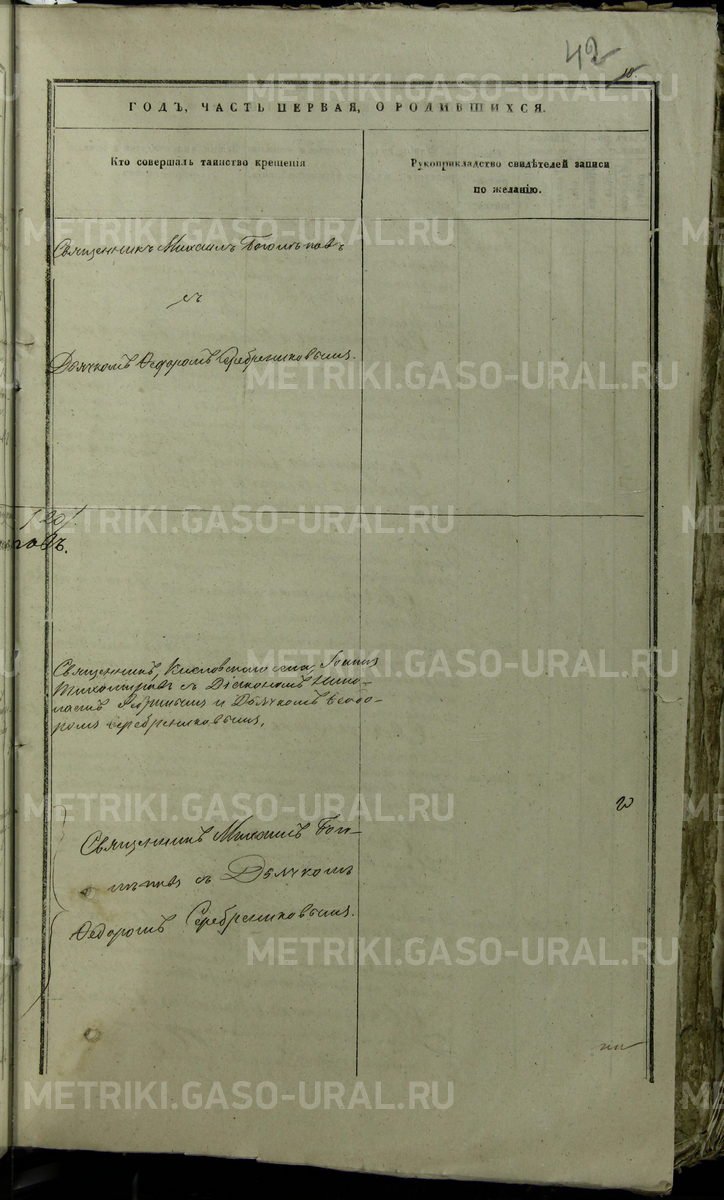 42
ГОДЪ, ЧАСТЬ ПЕРВАЯ, О РОДИВШИХСЯ.
Кто совершалъ таинство крещенія
Рукоприкладство свидѣтелей записи
по желанію.
Священникъ Михаилъ
съ
Дьячкомъ Ѳедоромъ Серебрениковымъ.
Священникъ, Кисловскаго села, Іоаннъ
Тихомировъ съ Діакономъ Нико-
лаемъ и Дьячкомъ Ѳеодо-
ромъ Серебрениковымъ.
Священникъ Михаилъ
съ Дьячкомъ
Ѳедоромъ Серебрениковымъ.
METRIKI.GASO-URAL.RU
METRIKI.GASO-URAL.RU
METRIKI.GASO-URAL.RU
METRIKI.GASO-URAL.RU
METRIKI.GASO-URAL.RU
METRIKI.GASO-URAL.RU
METRIKI.GASO-URAL.RU
METRIKI.GASO-URAL.RU